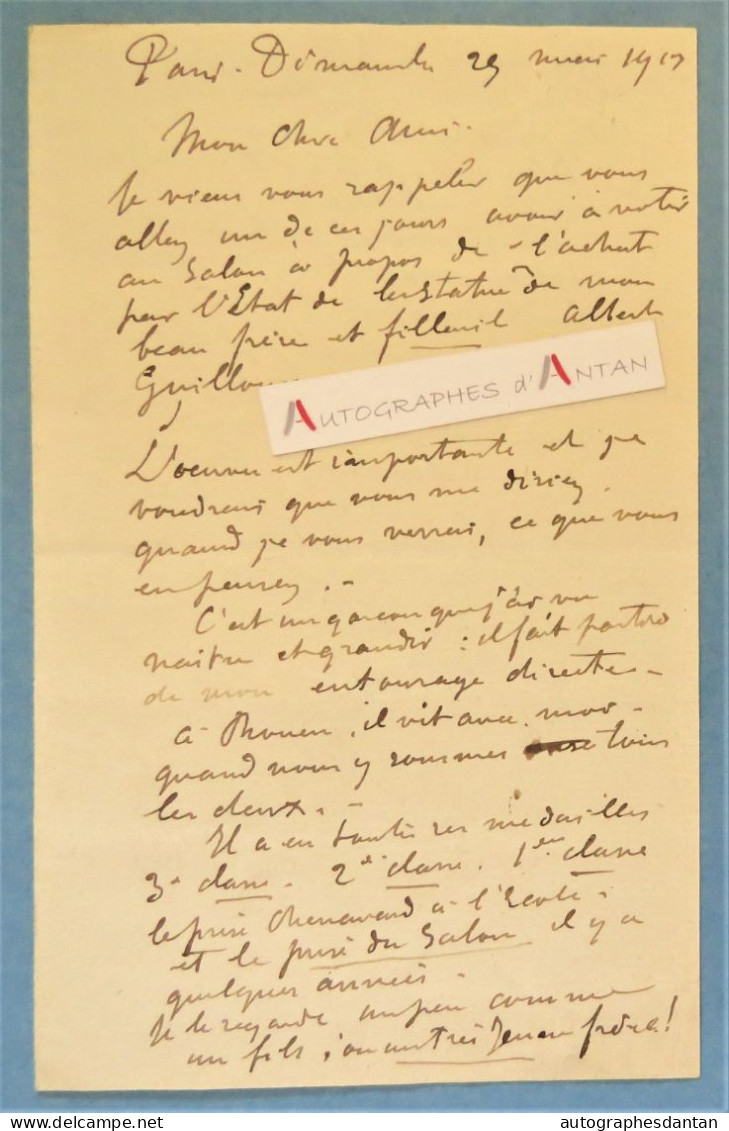 Paris - Dimanche 29 mai 1910
Mon cher Ami -
Je viens vous rappeler que vous
allez un de ces jours avoir à voter
au Salon à propos de - l'achat
par l'Etat de la statue de mon
beau frère et filleul Albert
Guilloux
AUTOGRAPHES d'ANTAN
L'oeuvre est importante et je
voudrais que vous me disiez,
quand je vous verrai, ce que vous
en pensez. -
C'est un garçon que j'ai vu
naitre et grandir : il fait partie
de mon entourage directe -
à Rouen, il vit avec moi -
quand nous y sommes tous
les deux. -
Il a eu toutes ses médailles
3e classe - 2e classe. 1ère classe
le prix Chenavard à l'Ecole -
et le prix du Salon il y a
quelques années -
Je le regarde un peu comme
un fils, ou un très jeune frère !
autographesdantan
delcampe.net